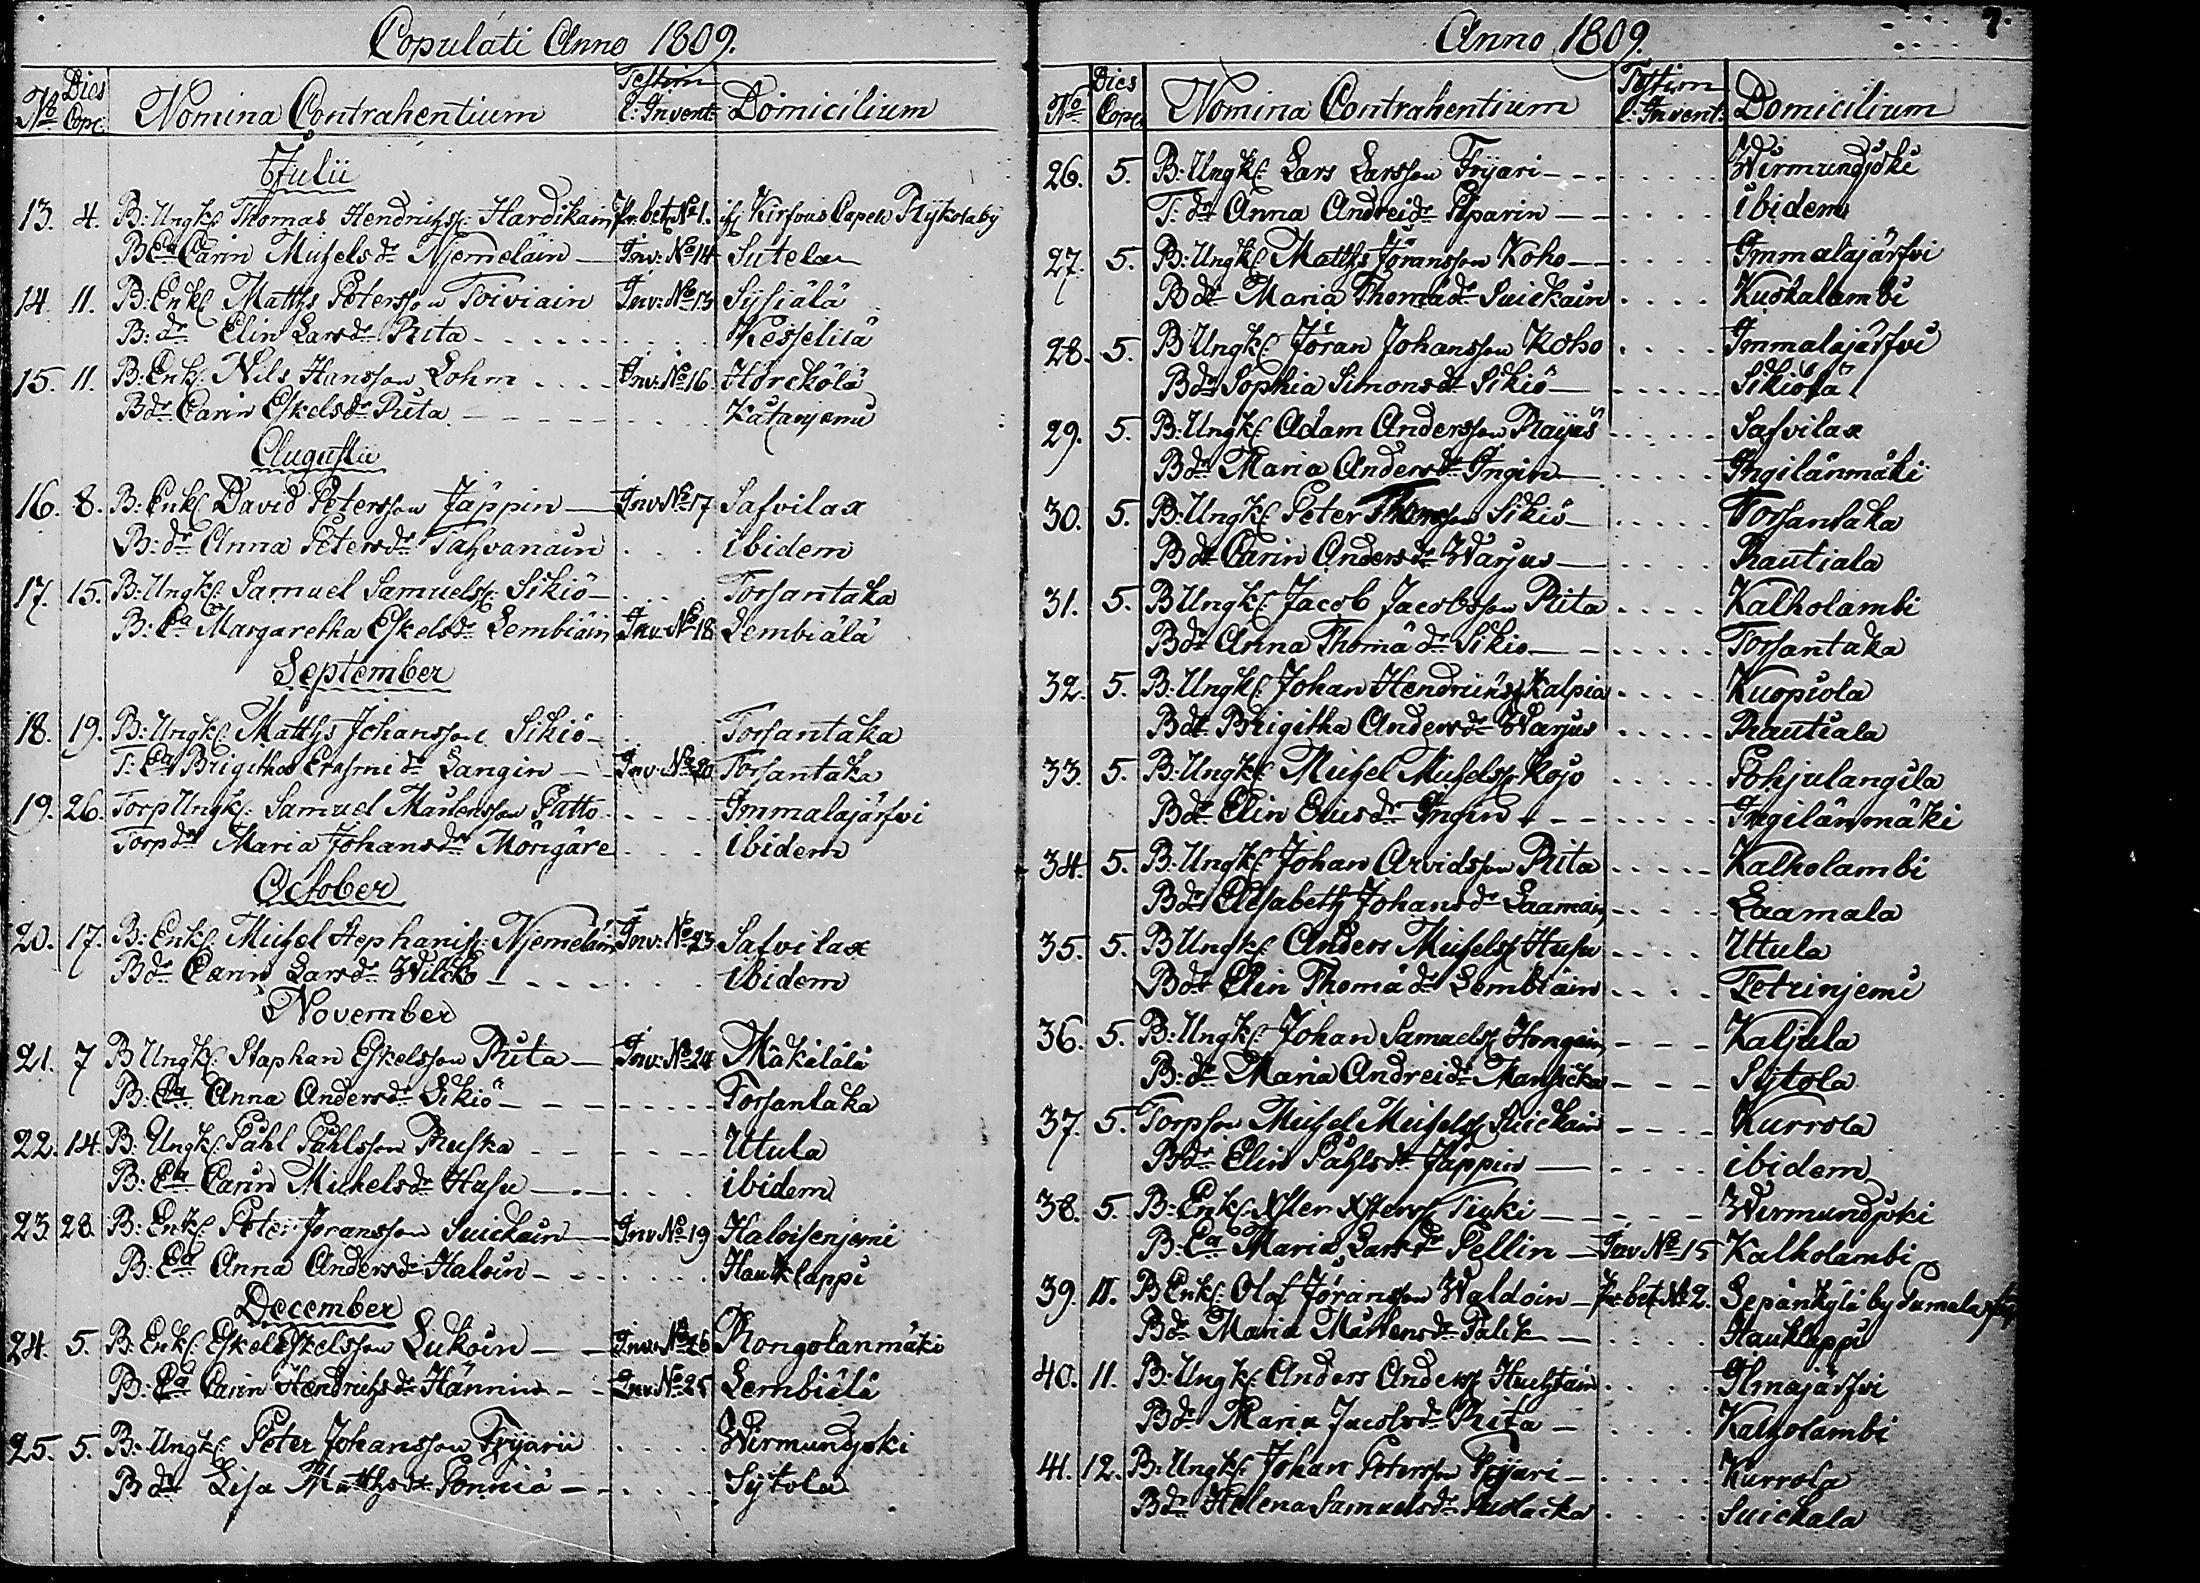 Copulati Anno 1809.
No Dies Cop. Nomina Contrahentium Testim l: Invent: Domicilium
Julii
13. 4. B: Ungk: Thomas Hendrichss: Hardikain Pr. bet. No 1. Kirfvus Capell Pyköla by
B Ea Carin Michelsdr Njemeläin — Inv: No 14 Sutela
14. 11. B: Enkl: Matths Petersson Toiviain Inv: No 13 Sysiälä
B: dr Elin Larsdr Rita Kesselilä
15. 11. B: Enkl: Nils Hansson Lohm Inv: No 16 Härckölä
B dr Carin Eskelsdr Rita Katanjemi
Augusti
16. 8. B: Enkl David Petersson Jäppin — Inv No 17 Safvilax
B: dr Anna Petersdr Tahvanain ibidem
17. 15. B: Ungk: Samuel Samuelss: Sikiö — Torsantaka
B: Ea Margaretha Eskelsdr Lembiäin Inv. No 18 Lembiälä
September
18. 19. B: Ungk: Matths Johansson Sikiö — Torsantaka
T: Ea Brigitha Erasmi dr Langin — Inv: No 20 Torsantaka
19. 26. Torp Ungk: Samuel Mårtensson Patto Immalajärfvi
Torp dr Maria Johansdr Mörigäre ibidem
October
20. 17. B: Enkl: Michel Stephaniss: Njemeläin Inv: No 23 Safvilax
B dr Carin Larsdr Wilck — ibidem
November
21. 7 B Ungk: Staphan Eskelsson Rita — Inv: No 24 Mäkälälä
B: Ea Anna Andersdr Sikiö — Torsantaka
22. 14. B: Ungk: Påhl Påhlsson Ruska Utula
B: Ea Carin Michelsdr Husu — ibidem
23 28. B: Enkl: Peter Joransson Suickain — Inv No 19 Haloisenjemi
B: Ea Anna Andersdr Haloin — Hauklappi
December
24. 5. B: Enkl: Eskel Eskelsson Lukoin — Inv. No 26 Rongolanmäki
B: Ea Carin Hendrichsdr Hännin — Inv No 25 Lembiälä
25. 5. B: Ungk: Peter Johansson Fryari Wirmundjoki
B dr Lisa Matthsdr Ponnia — Sytola
Anno 1809. 7.
No Dies Cop. Nomina Contrahentium Testim l: Invent: Domicilium
26. 5. B: Ungk: Lars Larsson Fryari — Wirmundjoki
T: dr Anna Andreidr Pparin — ibidem
27. 5. B: Ungk: Matths Jöransson Koho — Immalajärfvi
B dr Maria Thomädr Suickain Kuokalambi
28. 5. B Ungk: Jöran Johansson Koho Immalajärfvi
B dr Sophia Simonsdr Sikiö — Sikiölä
29. 5. B: Ungk: Adam Andersson Raijas Safvilax
B dr Maria Andersdr Ingin — Ingilänmäki
30. 5. B: Ungk: Peter Thomsson Sikiö — Torsantaka
B dr Carin Andersdr Warjus — Rautiala
31. 5. B Ungk: Jacob Jacobsson Rita Kalholambi
B dr Anna Thomä dr Sikiö — Torsantaka
32. 5. B: Ungk: Johan Hendrichss: Kalpia Kuopiola
B dr Brigitha Andersdr Warjus Rautiala
33. 5. B: Ungk: Michel Michelss: Kojo Pohjulangila
B dr Elin Ericsdr Ingin — Ingilänmäki
34. 5. B: Ungk: Johan Arvidsson Rita Kalholambi
B dr Elisabeth Johansdr Laamain Laamala
35. 5. B Ungk: Anders Michelss: Husu Utula
B dr Elin Thomä dr Lembiäin Tetrinjemi
36. 5. B: Ungk: Johan Samuelss: Hongain — Kaljula
B: dr Maria Andreidr Mansicka — Sytola
37. 5. Torpson Michel Michelss: Suickain — Kurrola
B dr Elin Påhlsdr Jäppin — ibidem
38. 5. B: Enkl: Tiuki — Wirmundjoki
B: Ea Maria Larsdr Pellin — Inv No 15 Kalholambi
39. 11. B Enkl: Olof Jöransson Waldoin — Pr. bet No 2. Sepänkylä by Sumala
B dr Maria Mårtensdr Palik — Hauklappi
40. 11. B: Ungk: Anders Anderss: Huchtain Ilmajärfvi
B dr Maria Jacobsdr Rita — Kalholambi
41. 12. B: Ungk: Johan Petersson Fryari — Kurrola
B dr Helena Samuelsdr Suickala